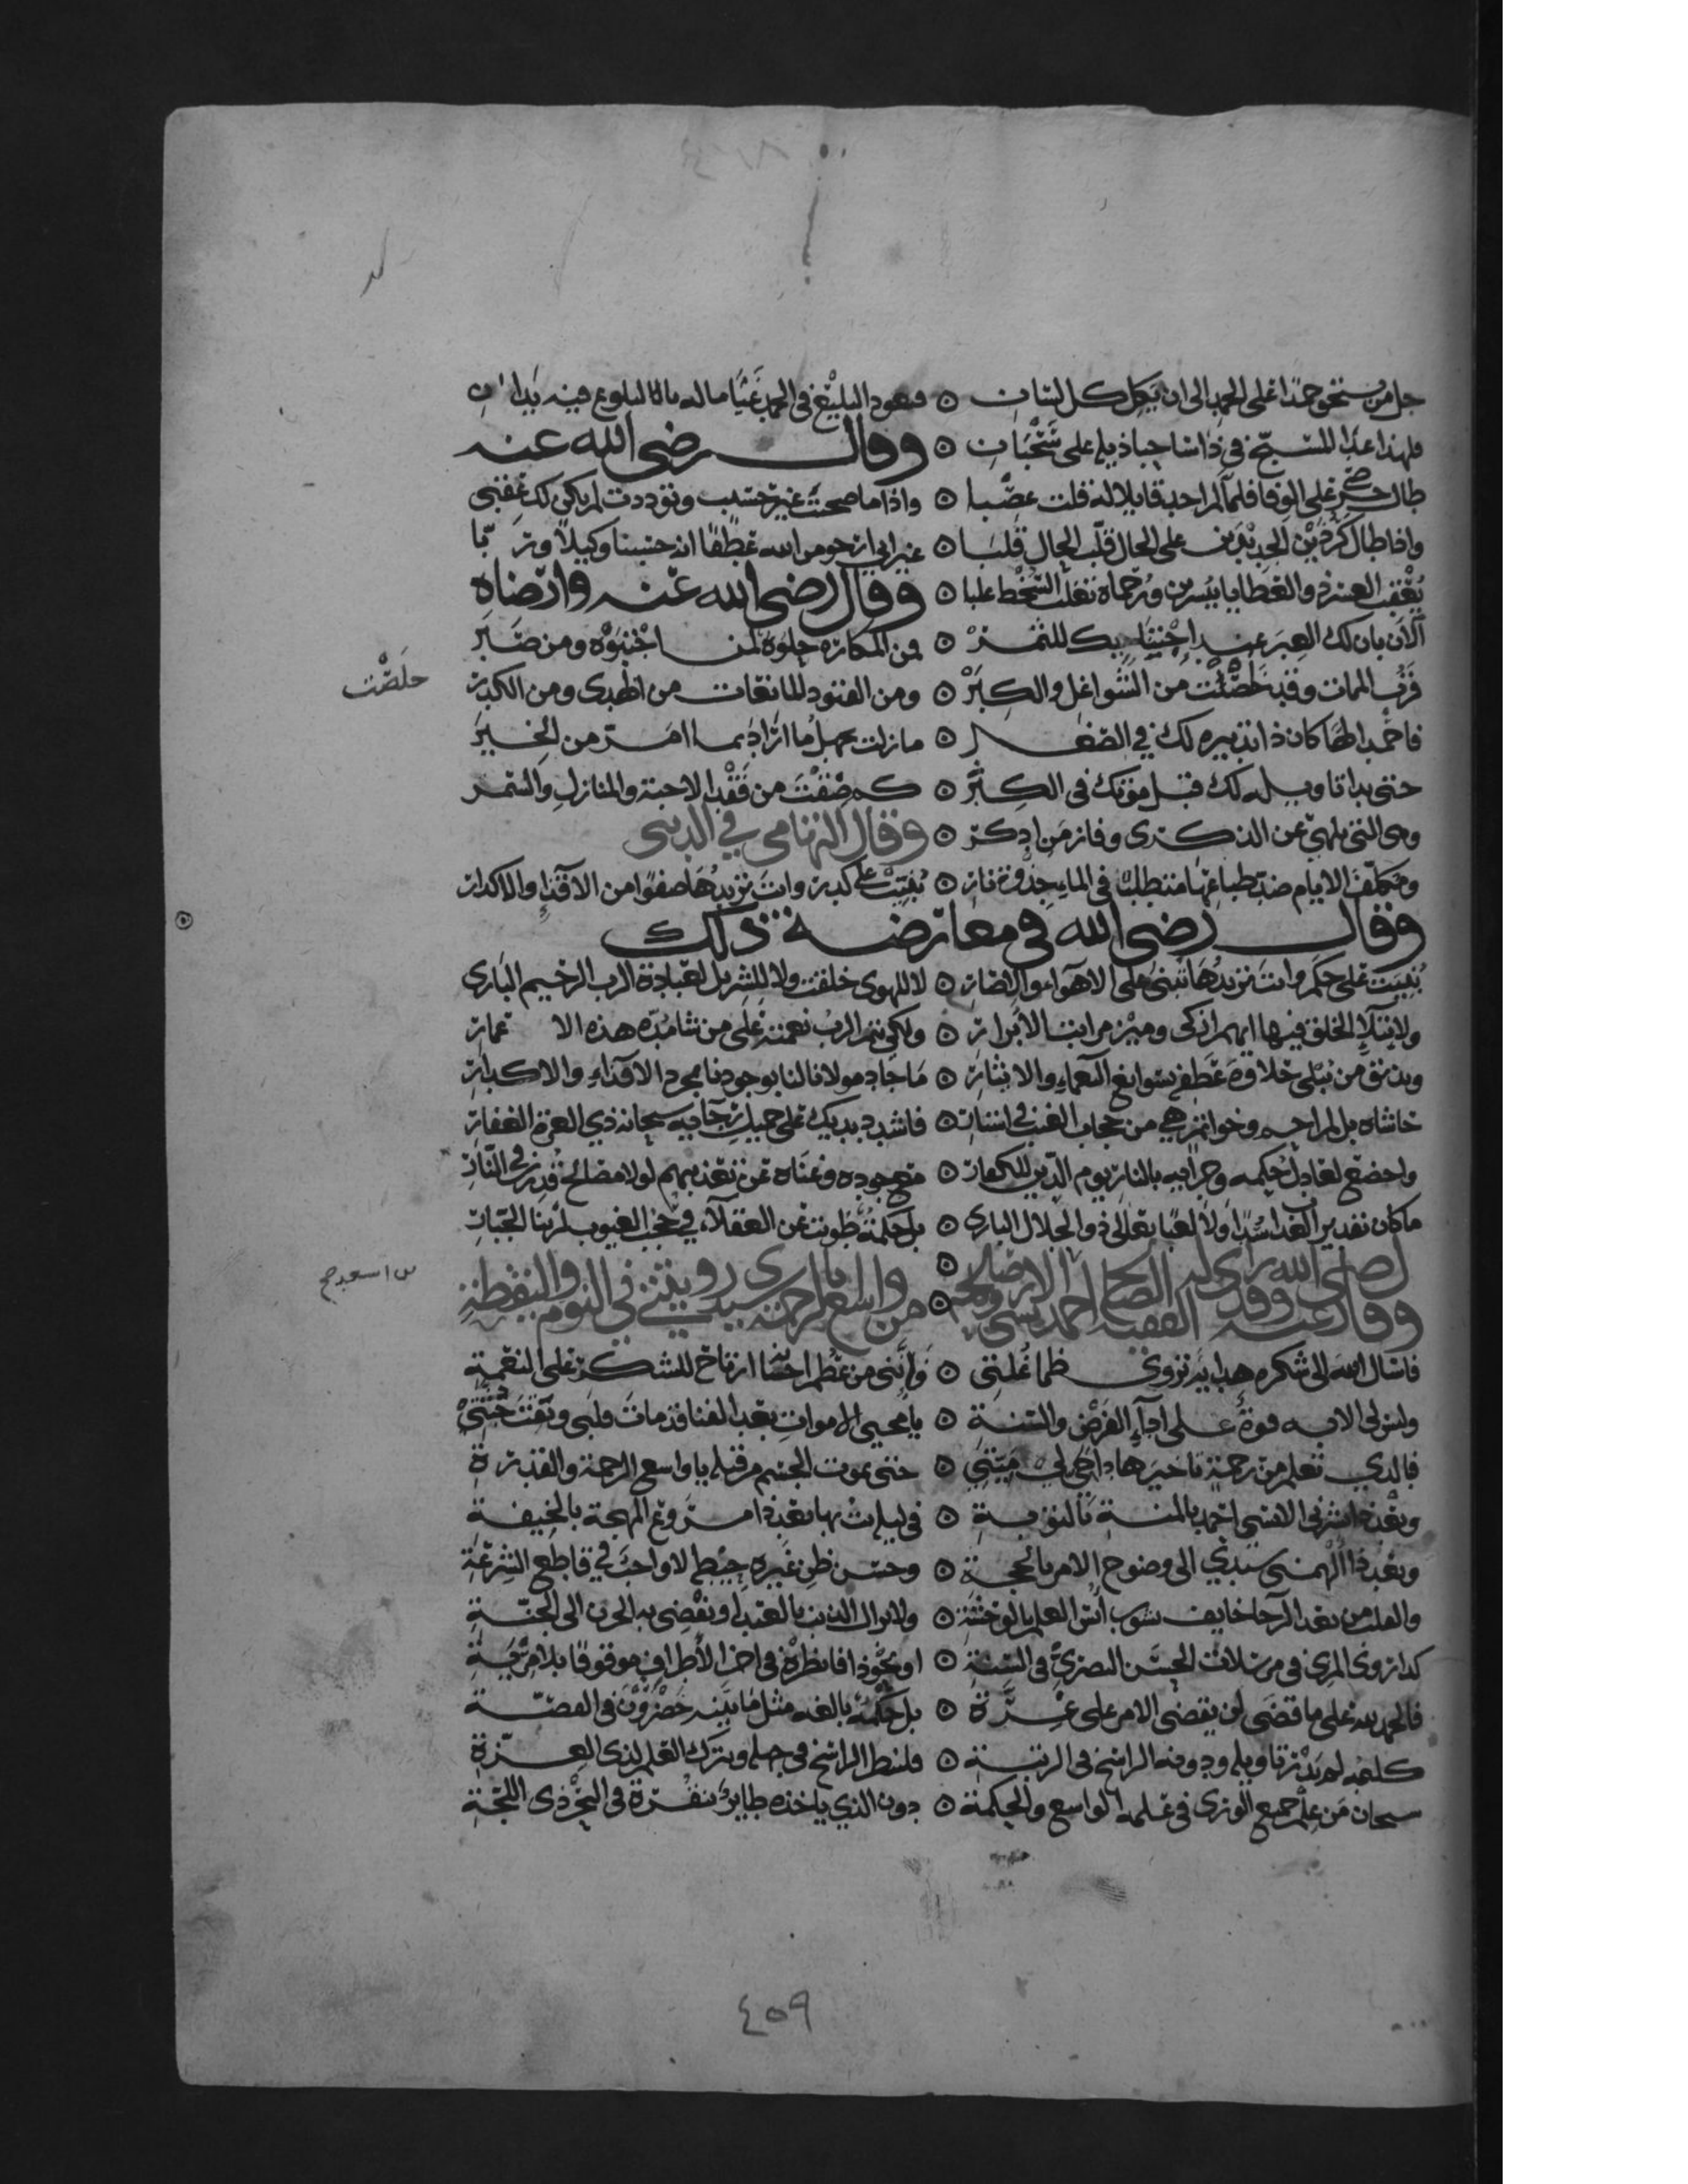 جل من يستحق حمدا على الحمد الى ان يكل كل لسان ۞ فيعود البليغ في الحمد عييا ماله بالبلوغ فيه يدان
فلهذا غدا المسبح في ذا ساحبا ذيله على سحبان ۞ وقال رضي الله عنه
طال حرصي على الوفا فلما لم اجد قابلا له قلت غصبا ۞ واذا ما صحبت غير حسيب وتوددت لم يكن لك عقبى
واذا طال كر ذين الجديدين على الحال قلب الحال قلبا ۞ غير اني ارجو من الله عطفا انه حسبنا وكيلا وربا
يعقب العسر والعطايا بيسرين ورحماه تغلب السخط غلبا ۞ وقال رضي الله عنه وارضاه
الآن بان لك العبر عند اجتنايك للثمر ۞ فمن المكاره حلوة لمن اجتنوه ومن صبر
قرب الممات وقد خلصت من الشواغل والكبر ۞ ومن القيود المانعات من الهدى ومن الكدر
خلصت
فاحمد الها كان ذا تدبيره لك في الصغر ۞ ما زلت تجهل ما اراد بما امر من الخير
حتى بدا تاويله لك قبل موتك في الكبر ۞ كم ضقت من فقد الاحبة والمنازل والسمر
وهي التي تلهي عن الذكرى وفاز من ادكر ۞ وقال التهامي في الدنيا
ومكلف الايام ضد طباعها متطلب في الماء جذوة نار ۞ بنيت على كدر وانت تريدها صفوا من الاقذاء والاكدار
وقال رضي الله في معارضة ذلك
بنيت على حكم وانت تريدها تبنى على الاهواء والاضار ۞ لا للهوى خلقت ولا للشر بل لعبادة الرب الرحيم الباري
ولابتلاء الخلق فيها ايهم ازكى وميز مراتب الابرار ۞ ولكي يتم الرب نعمته على من شا مده هذه الاعمار
ويذيق من يبلى حلاوة عطفه بسوابغ النعماء والايثار ۞ ما جاد مولانا لنا بوجودنا لمجرد الاقذاء والاكدار
حاشاه بل لمراحم وخواتم هي من حجاب الغيب في استار ۞ فاشدد يديك على جميل رجائه سبحانه ذي العزة الغفار
واخضع لعادل حكمه وجزائه بالنار يوم الدين للكفار ۞ مع جوده وغناه عن تعذيبهم لولا مصالح قدرت في النار
ما كان تقدير الغدا سدا ولا لعبا تعالى ذو الجلال الباري ۞ بل حكمة طويت عن العقلاء في حجب الغيوب لربنا الجبار
وقال رضي الله عنه وقد راى له الفقيه الصالح احمد ۞ من واسع الرحمة سيدي رويتني في النوم واليقظة
فاسال الله الى شكره هداية تروي ظما غلتي ۞ وانني من عظم احسانه ارتاح للشكر على النعمة
وليس لي الا به قوة على اداء الفرض والسنة ۞ يا محيي الاموات بعد الفنا قد مات قلبي وبقت جثتي
فالذي تعلم من رحمة تاخيرها داحي لي ميتتي ۞ حتى يموت الجسم من قبله يا واسع الرحمة والقدرة
وبعد ذا بشرني الانسي احمد بالمنة بالتوبة ۞ في ليلة بها بعد ذا مروع المهجة بالخيفة
وبعد ذا الهمني سيدي الى وضوح الامر بالحجة ۞ وحسن ظن غيره حيط لا واجب في قاطع الشرعة
والقلب من بعد الرجا خايف يشوب انس العلم بالوحشة ۞ ولا يزال الذنب بالعبد او يفضي به الحزن الى الجنة
كذا روى المزي في مرسلات الحسن البصري في السنة ۞ او نحو ذا فانظره في اخر الاطراف موقوفا بلا مرية
فالحمد لله على ما قضى لن يقضي الامر على غرة ۞ بل حكمة بالغه مثل ما بينه خضرون في القصة
كليمه لم يدر تاويله ودونه الراسخ في الرتبة ۞ فلينظر الراسخ في جهله ويترك العلم لذي العزة
سبحان من علم جميع الورى في علمه الواسع والحكمة ۞ دون الذي ياخذه طاير بنقرة في البحر ذي اللجة
٤٥٩